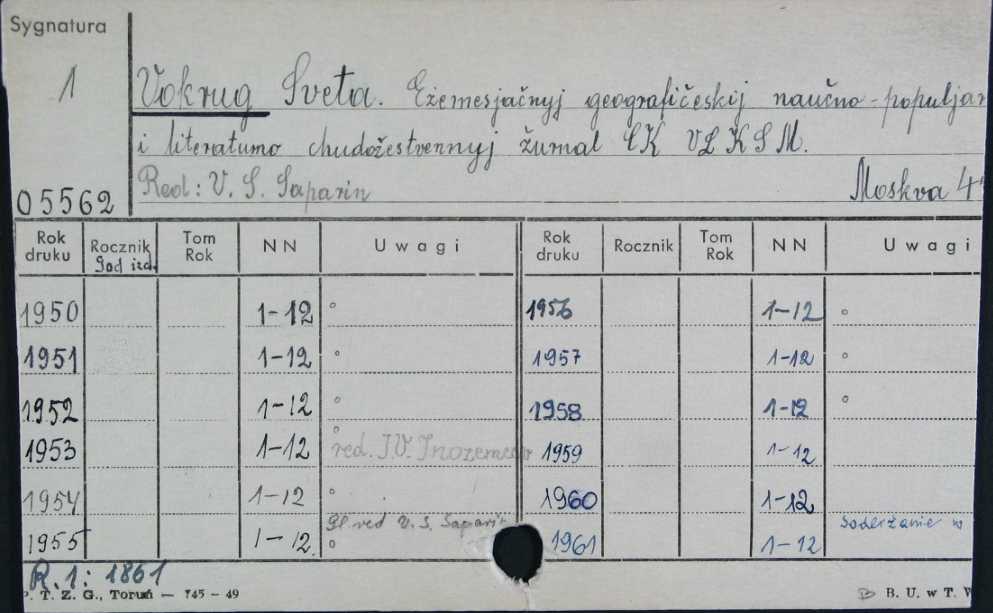 Sygnatura
1
Vokrug Sveta. Eżemesjačnyj geografičeskij naučno-populjar
i literaturno chudožestvennyj žurnal CK VLKSM.
Red: V. S. Saparin Moskva
05562
Rok druku Rocznik God izd. Tom Rok NN Uwagi Rok druku Rocznik Tom Rok NN Uwagi
1950 1-12 ° 1956 1-12 °
1951 1-12 ° 1957 1-12 °
1952 1-12 ° 1958 1-12 °
1953 1-12 ° red. I.V. Inozemcev 1959 1-12
1954 1-12 ° 1960 1-12
Gl red V. S. Saparin Soderžanie w
1955 1-12. ° 1961 1-12
R. 1: 1861
P. T. Z. G., Toruń — 745 - 49 B. U. w T.